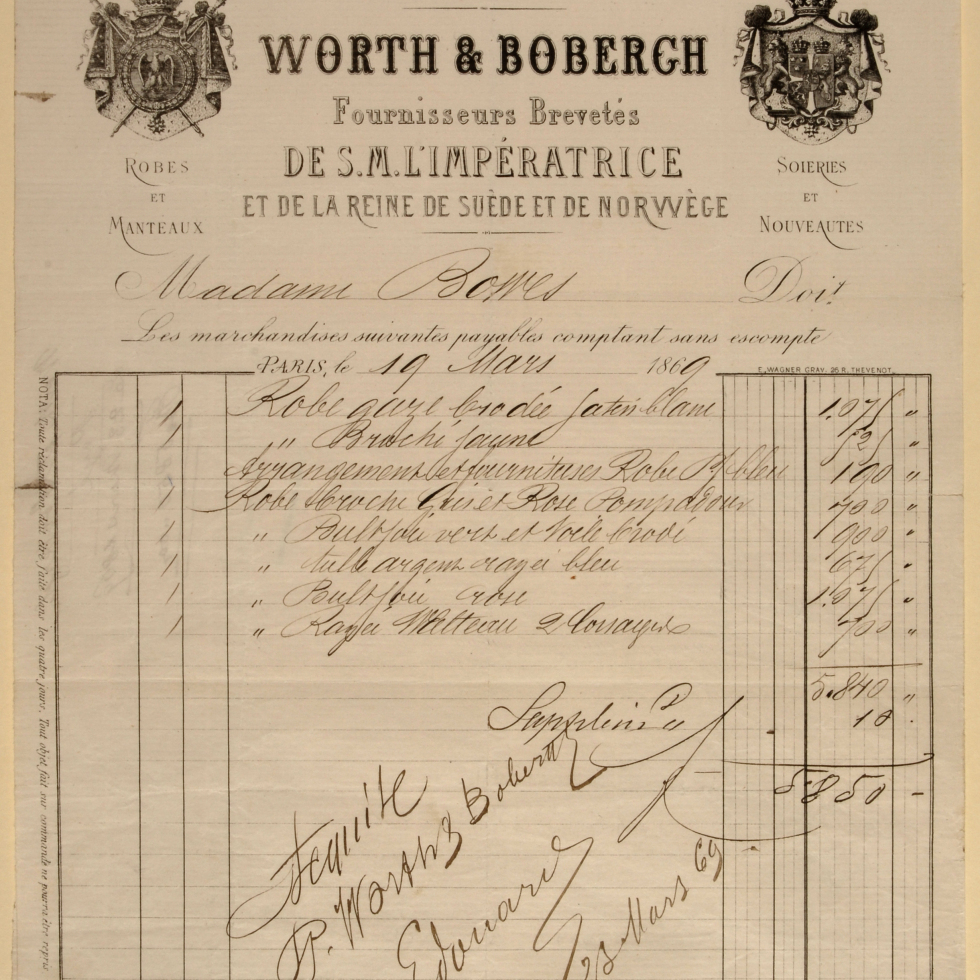 WORTH & BOBERGH
Fournisseurs Brevetés
DE S.M. L'IMPÉRATRICE
ET DE LA REINE DE SUÈDE ET DE NORWÈGE
ROBES
ET
MANTEAUX
SOIERIES
ET
NOUVEAUTES
Madame Bowes Doit
Les marchandises suivantes payables comptant sans escompte
PARIS, le 19 Mars 1869
E. WAGNER GRAV. 26 R. THEVENOT.
1 Robe gaze brodée satin blanc 1.075 "
1 " Broché jaune "
Arrangement et fournitures Robe bleu 190 "
1 Robe broché Gris et Rose Pompadour 700 "
1 " vert et voile brodé 900 "
1 " tulle argent rayé bleu 675 "
1 " rose 1.075 "
1 " Rayée Watteau 2 Corsages 700 "
5.840 "
10.
5850 -
Acquitté
P. Worth & Bobergh
Edouard
23 Mars 69
NOTA: Toute réclamation doit être faite dans les quatre jours. Tout objet fait sur commande ne pourra être repris